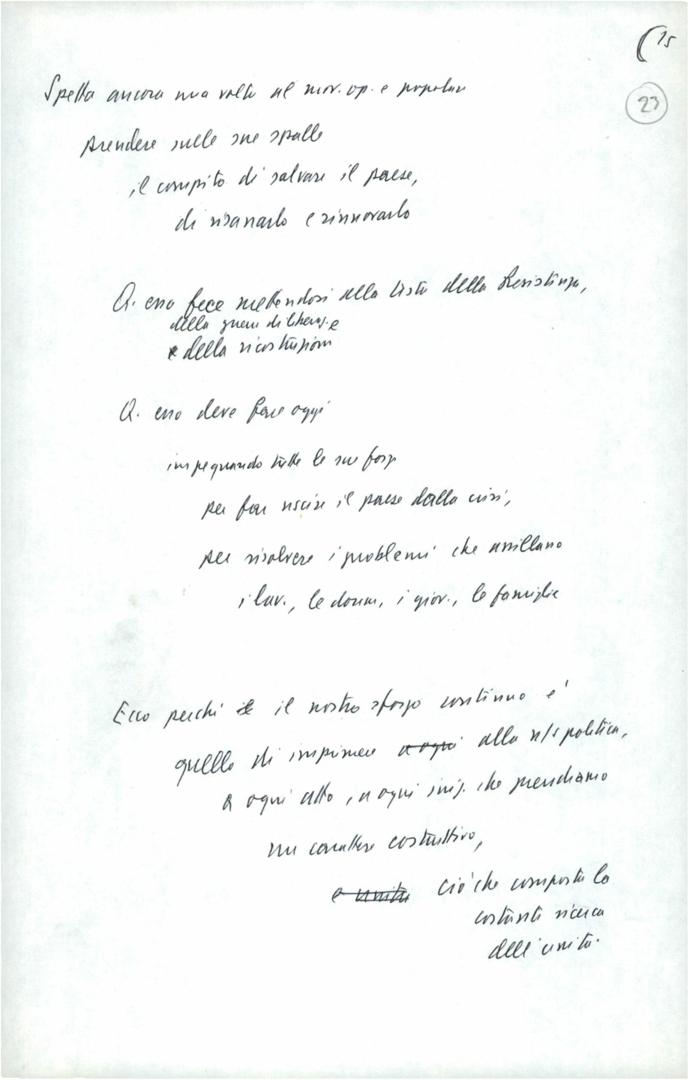 15
23
Spetta ancora una volta al mov. op. e popolare
prendere sulle sue spalle
il compito di salvare il paese,
di risanarlo e rinnovarlo
Q. esso fece mettendosi alla testa della Resistenza,
della guerra di liberaz. e
della ricostruzione
Q. esso deve fare oggi
impegnando tutte le sue forze
per far uscire il paese dalla crisi,
per risolvere i problemi che assillano
i lav., le donne, i giov., le famiglie
Ecco perché il nostro sforzo continuo è
quello di imprimere a ogni alla n/s politica,
a ogni atto, a ogni iniz. che prendiamo
un carattere costruttivo,
e unità ciò che comporta la
costante ricerca
dell'unità.